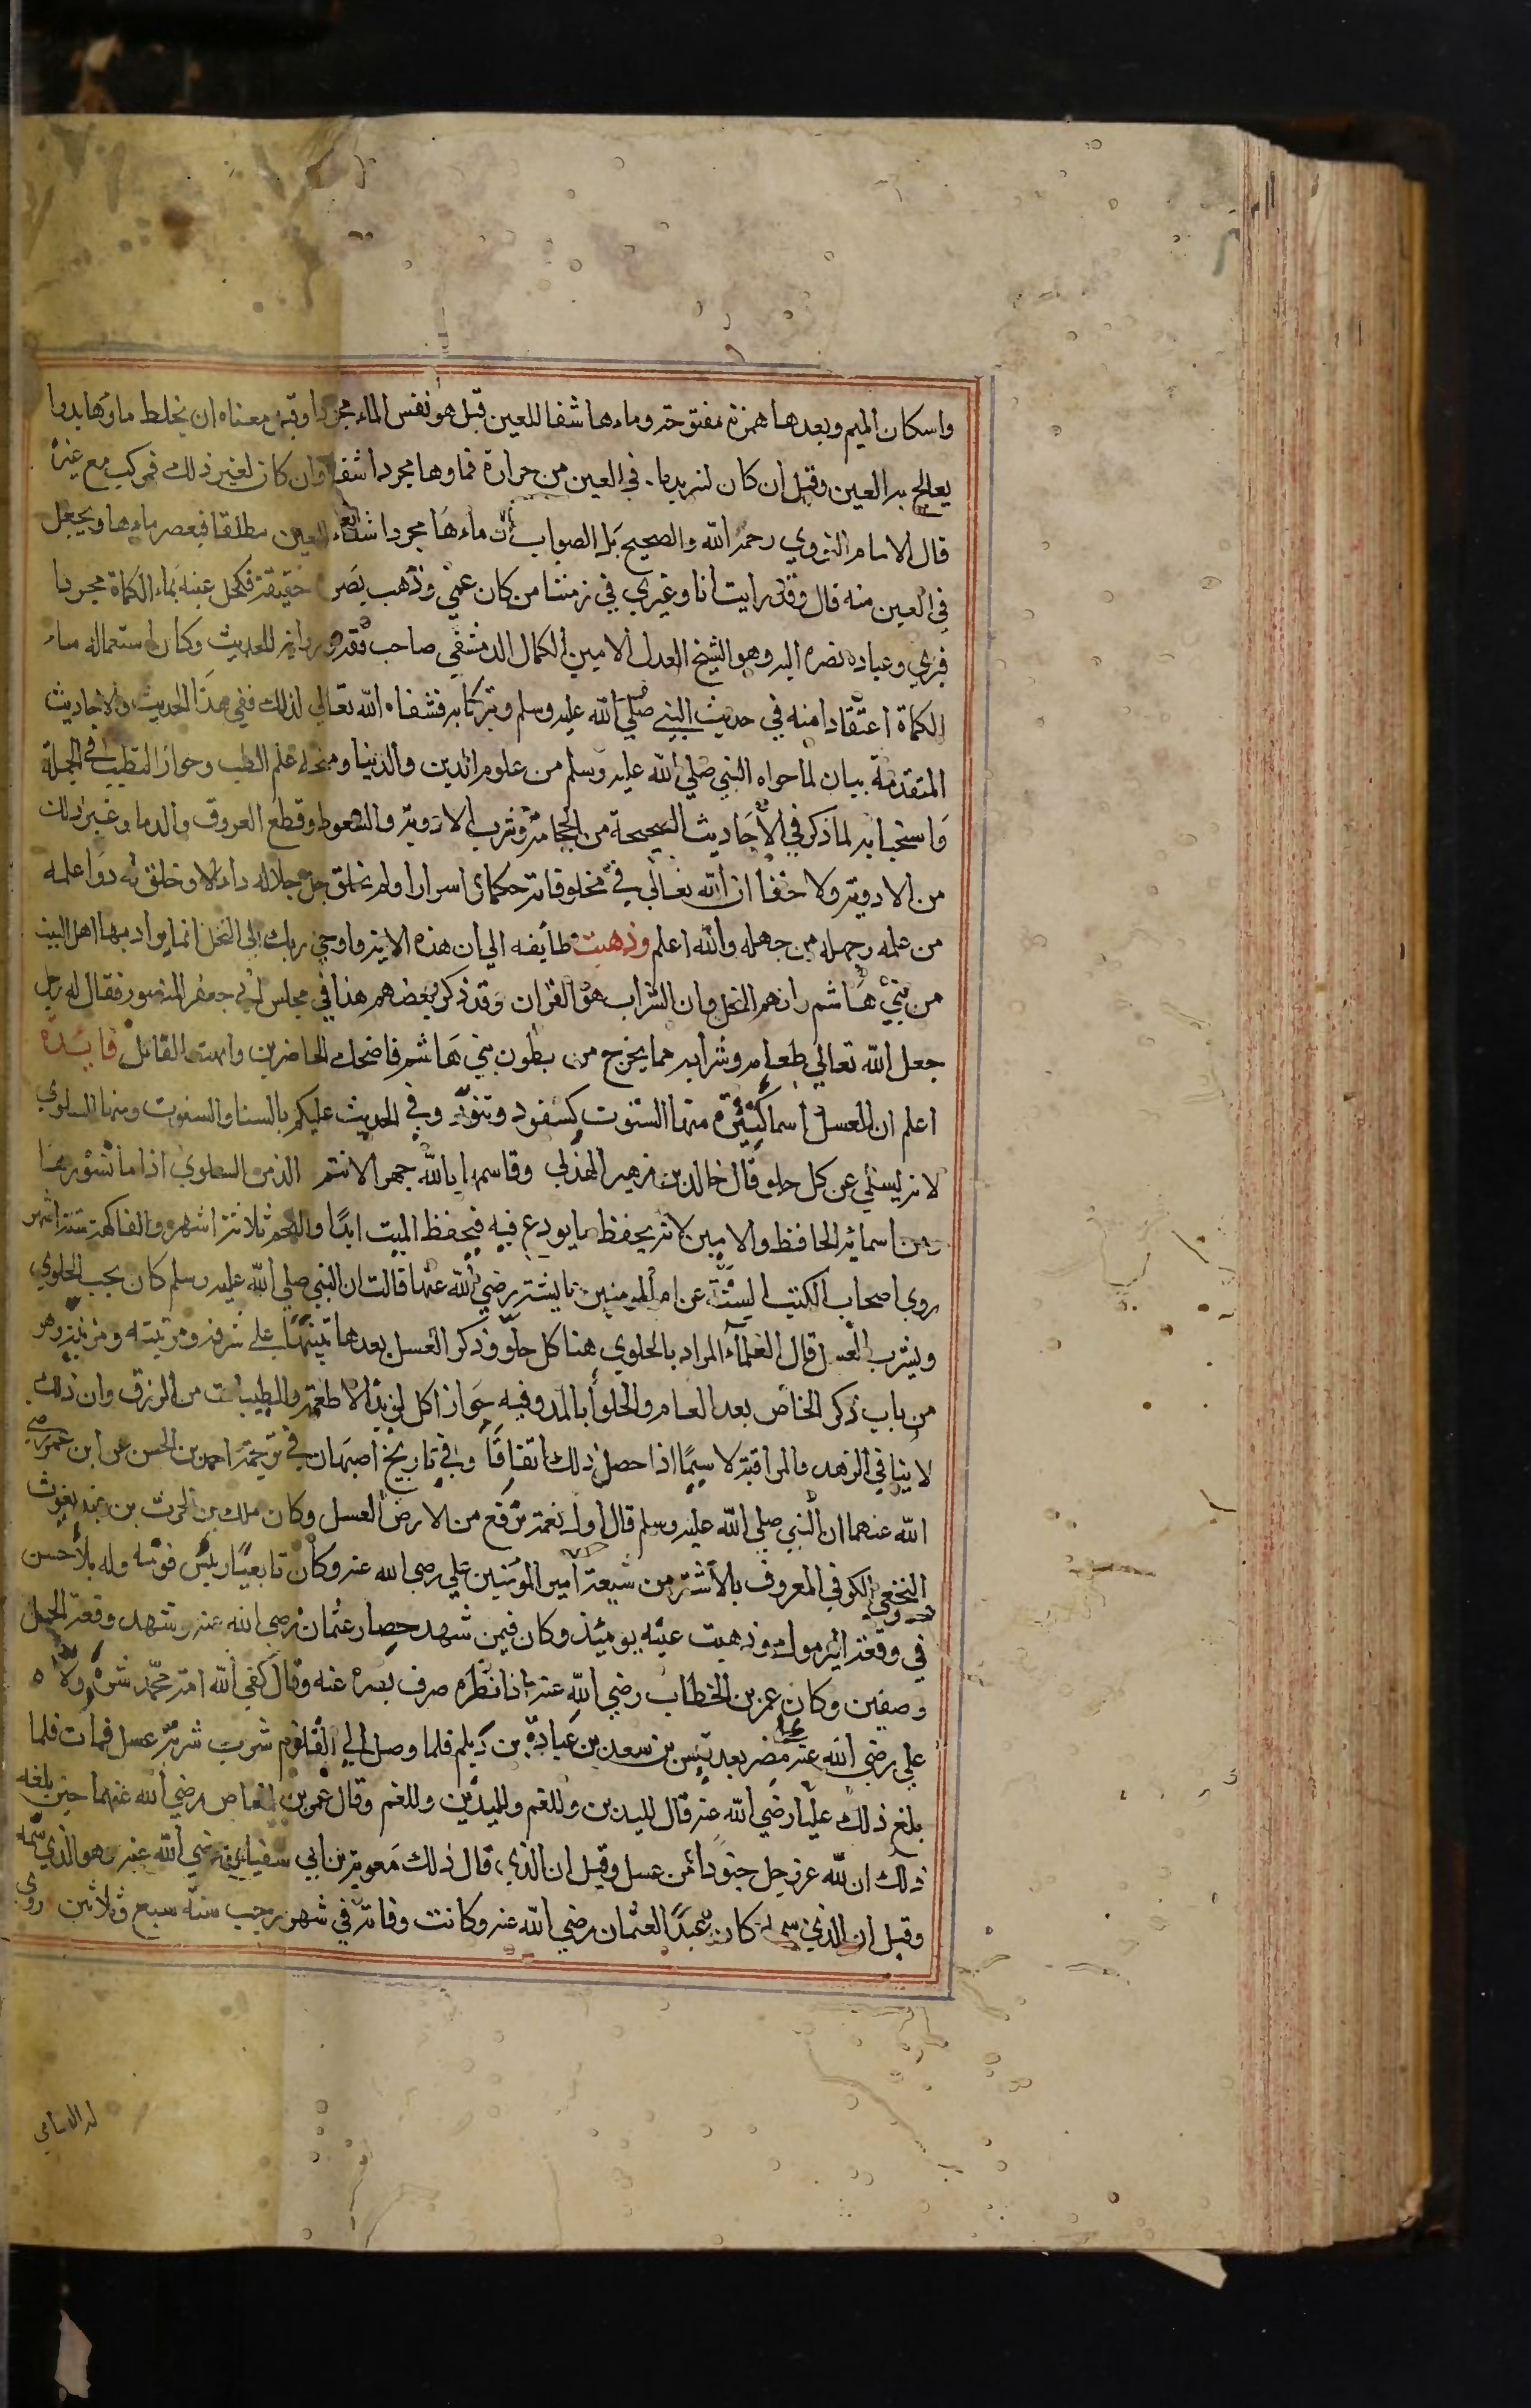 واسكان الميم وبعدها همزة مفتوحة وماءها شفا للعين قيل هو نفس الماء مجردا وقيل معناه ان يخلط ماؤها بدوا
يعالج به العين وقيل ان كان لتبريد ما في العين من حرارة فماوها مجردا شفا وان كان لغير ذلك فمركب مع غيره
قال الامام النووي رحمه الله والصحيح بل الصواب ان ماءها مجردا شفاء العين مطلقا فيعصر ماءها ويجعل
في العين منه قال وقد رايت انا وغيري في زمننا من كان عمي وذهب بصره حقيقة فكحل عينه بماء الكماة مجردا
فبري وعاد بصره اليه وهو الشيخ العدل الامين الكمال الدمشقي صاحب فقه ورواية للحديث وكان استعماله ماء
الكماة اعتقادا منه في حديث النبي صلي الله عليه وسلم وتبركا به فشفاه الله تعالي لذلك ففي هذا الحديث والاحاديث
المتقدمة بيان لما حواه النبي صلي الله عليه وسلم من علوم الدين والدنيا وصحة علم الطب وجواز التطبب في الجملة
واستحبابه لما ذكر في الاحاديث الصحيحة من الحجامة وشرب الادوية والسعوط وقطع العروق والدما وغير ذلك
من الادوية ولا خفا ان الله تعالي في مخلوقاته حكما واسرارا ولم يخلق جل جلاله داء الا وخلق له دوا علمه
من علمه وجهله من جهله والله اعلم وذهبت طايفه الي ان هذه الاية واوحي ربك الي النحل انما يراد بها اهل البيت
من بني هاشم وانهم النحل وان الشراب هو القران وقد ذكر بعضهم هذا في مجلس ابي جعفر المنصور فقال له رجل
جعل الله تعالي طعامه وشرابه مما يخرج من بطون بني هاشم فاضحك الحاضرين وابهت القائل فايدة
اعلم ان للعسل اسما كثيرة منها السنوت كسفود وتنور وفي الحديث عليكم بالسنا والسنوت ومنها السلوي
لانه يسلي عن كل حلو قال خالد بن زهير الهذلي وقاسمها بالله جهرا لانتم الذ من السلوي اذا ما نشورها
ومن اسمائه الحافظ والامين لانه يحفظ ما يودع فيه فيحفظ الميت ابدا واللحم ثلاثة اشهر والفاكهة ستة اشهر
روي اصحاب الكتب الستة عن ام المومنين عايشة رضي الله عنها قالت ان النبي صلي الله عليه وسلم كان يحب الحلوي
ويشرب العسل قال العلماء المراد بالحلوي هنا كل حلو وذكر العسل بعدها تنبيها علي شرفه ومرتبته ومزيته وهو
من باب ذكر الخاص بعد العام والحلوا بالمد وفيه جواز اكل لذيذ الاطعمة والطيبات من الرزق وان ذلك
لا ينافي الزهد والمراقبة لا سيما اذا حصل ذلك اتفاقا وفي تاريخ اصبهان في ترجمة احمد بن الحسن عن ابن عمر رضي
الله عنهما ان النبي صلي الله عليه وسلم قال اول نعمة ترفع من الارض العسل وكان ملك بن الحرث بن عبد يغوث
النخعي الكوفي المعروف بالاشتر من شيعة امير المؤمنين علي رضي الله عنه وكان تابعيا رئيس قومه وله بلاء حسن
في وقعة اليرموك وذهبت عينه يومئذ وكان فيمن شهد حصار عثمان رضي الله عنه وشهد وقعة الجمل
وصفين وكان عمر بن الخطاب رضي الله عنه اذا نظره صرف بصره عنه وقال كفي الله امة محمد شره ولاه
علي رضي الله عنه مصر بعد قيس بن سعد بن عبادة بن ديلم فلما وصل الي القلزم شرب شربة عسل فمات فلما
بلغ ذلك عليا رضي الله عنه قال لليدين وللفم ولليدين وللفم وقال عمرو بن العاص رضي الله عنهما حين بلغه
ذلك ان لله عز وجل جنودا من عسل وقيل ان الذي قال ذلك معوية بن ابي سفيان رضي الله عنه وهو الذي سمه
وقيل ان الذي سمه كان عبدا لعثمان رضي الله عنه وكانت وفاته في شهر رجب سنة سبع وثلاثين روي